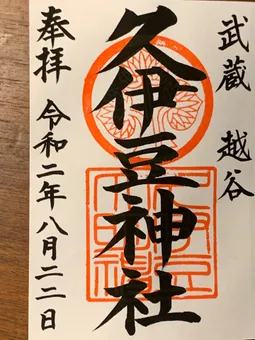 武蔵 越谷
久伊豆神社
奉拝 令和二年八月二二日